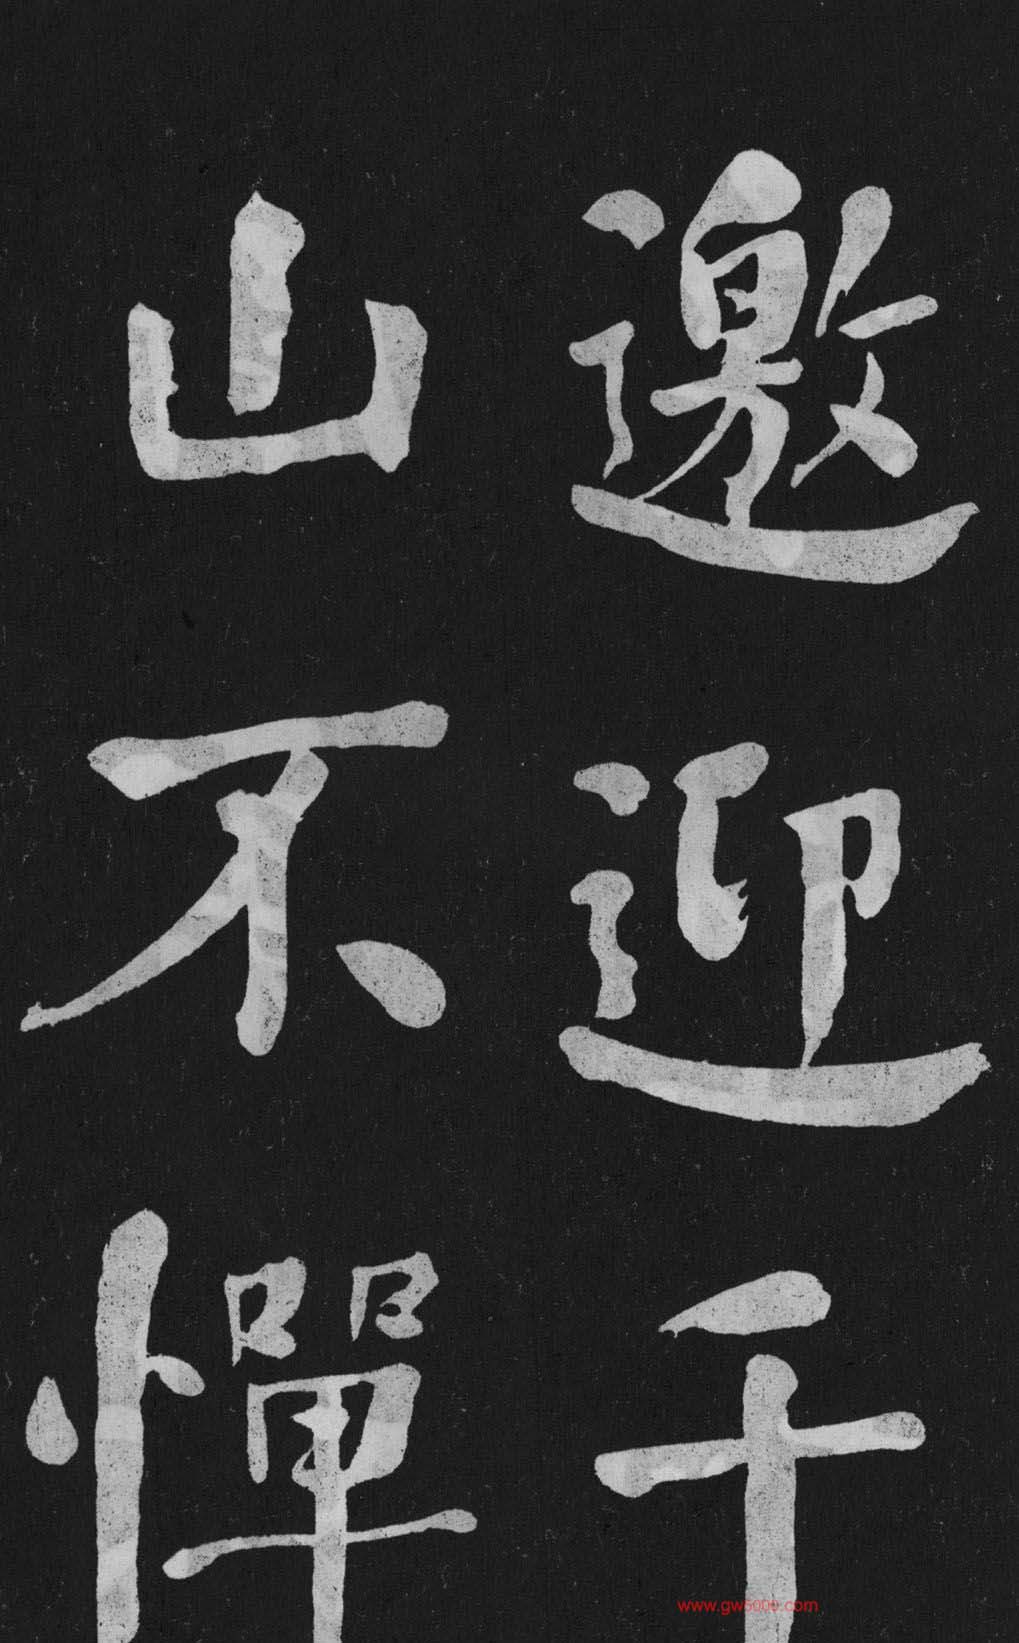 邀迎千
山不憚
www.gw5000.com